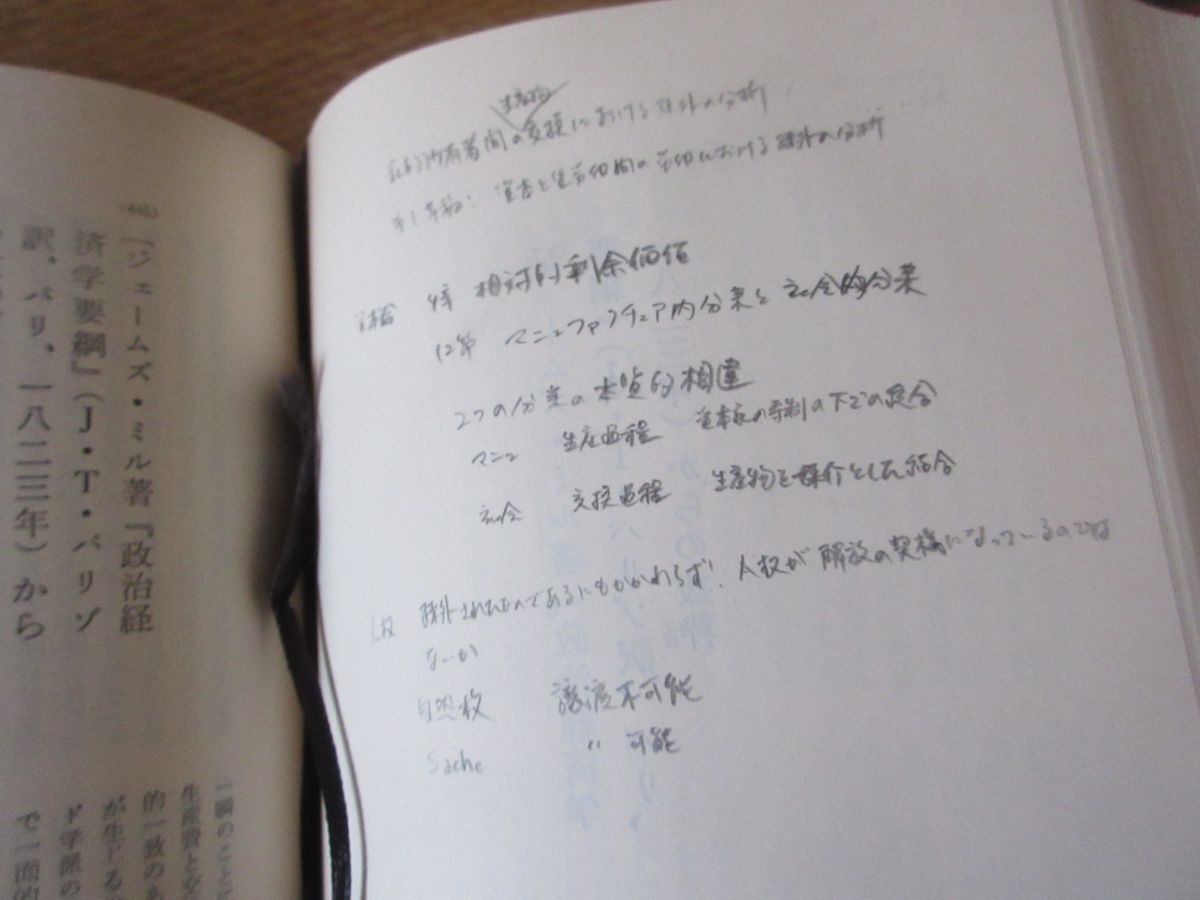 (445)
〔ジェームズ・ミル著『政治経
済学要綱』(J・T・パリゾ
訳、パリ、一八二三年)から
生産物
所有者間の交換における疎外の分析
資本と 労働における疎外の分析
4章 相対的剰余価値
12章 マニュファクチュア内分業と社会的分業
2つの分業の本質的相違
マニュ 生産過程 資本家の の下での結合
社会 交換過程 生産物を媒介とした結合
人権 疎外されたものであるにもかかわらず、人権が解放の契機になっているのでは
ないか
自然権 譲渡不可能
Sache 〃 可能
生産費と
的一致のあ
が生じる
ド学派の
で一面的